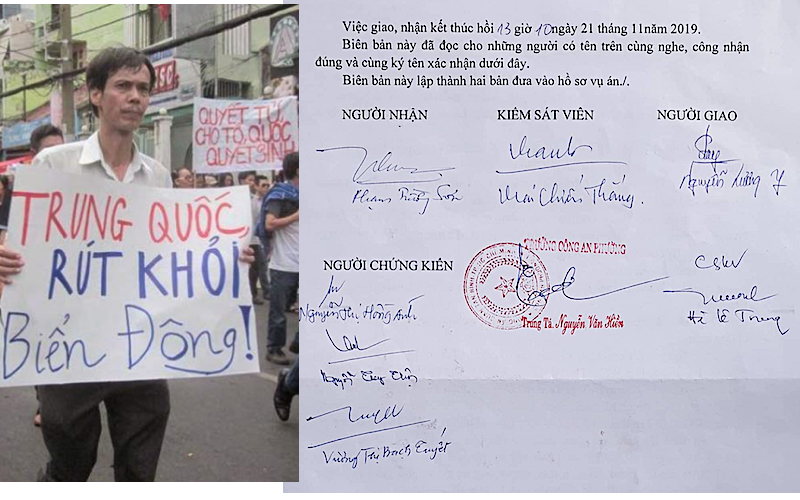 QUYẾT TỬ
CHO TỔ QUỐC
QUYẾT SINH
TRUNG QUỐC,
RÚT KHỎI
Biển Đông!
Việc giao, nhận kết thúc hồi 13 giờ 10 ngày 21 tháng 11 năm 2019.
Biên bản này đã đọc cho những người có tên trên cùng nghe, công nhận
đúng và cùng ký tên xác nhận dưới đây.
Biên bản này lập thành hai bản đưa vào hồ sơ vụ án./.
NGƯỜI NHẬN KIỂM SÁT VIÊN NGƯỜI GIAO
Mai Chiến Thắng Nguyễn Lương
NGƯỜI CHỨNG KIẾN
TRƯỞNG CÔNG AN PHƯỜNG
CSKV
Nguyễn Thị Hồng Anh
Trung Tá. Nguyễn Văn Hiền
Hà Lê Trung
Nguyễn
Vương Thị Bạch Tuyết